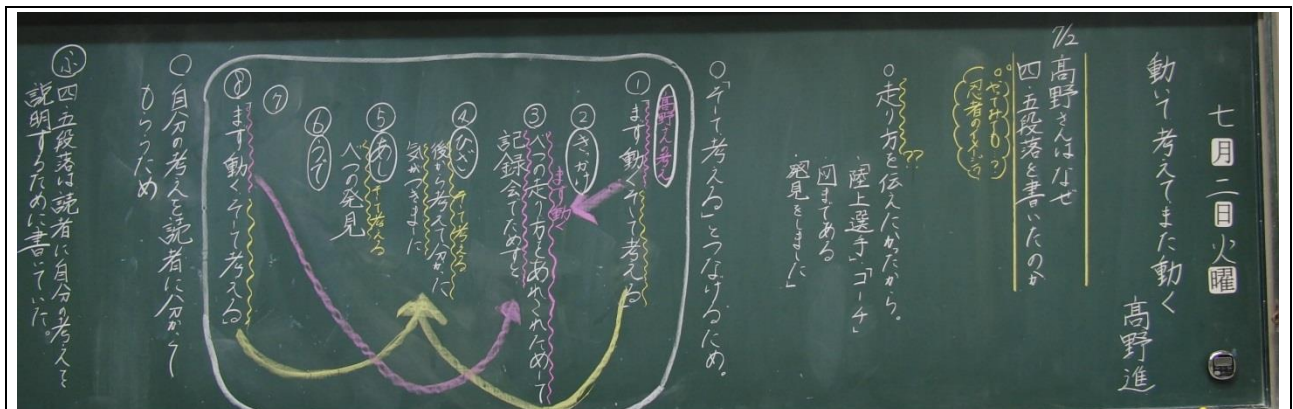 七月二日火曜
動いて考えてまた動く
高野進
7/2
高野さんはなぜ
四・五段落を書いたのか
忍者のイメージ
○走り方を伝えたかったから。
??
「陸上選手」「コーチ」
図まである
「発見をしました」
○「そして考える」とつなげるため。
高野さんの考え
①まず動く、そして考える」
②きっかけ
まず動く
③八つの走り方をあれこれためして
記録会でためすと
④ひざ そして考える
後から考えて分かった
気がつきました
⑤あし そして考える
八つの発見
⑥うで
⑦
⑧まず動く、そして考える」
○自分の考えを読者に分かって
もらうため
ふ 四・五段落は読者に自分の考えを
説明するために書いていた。